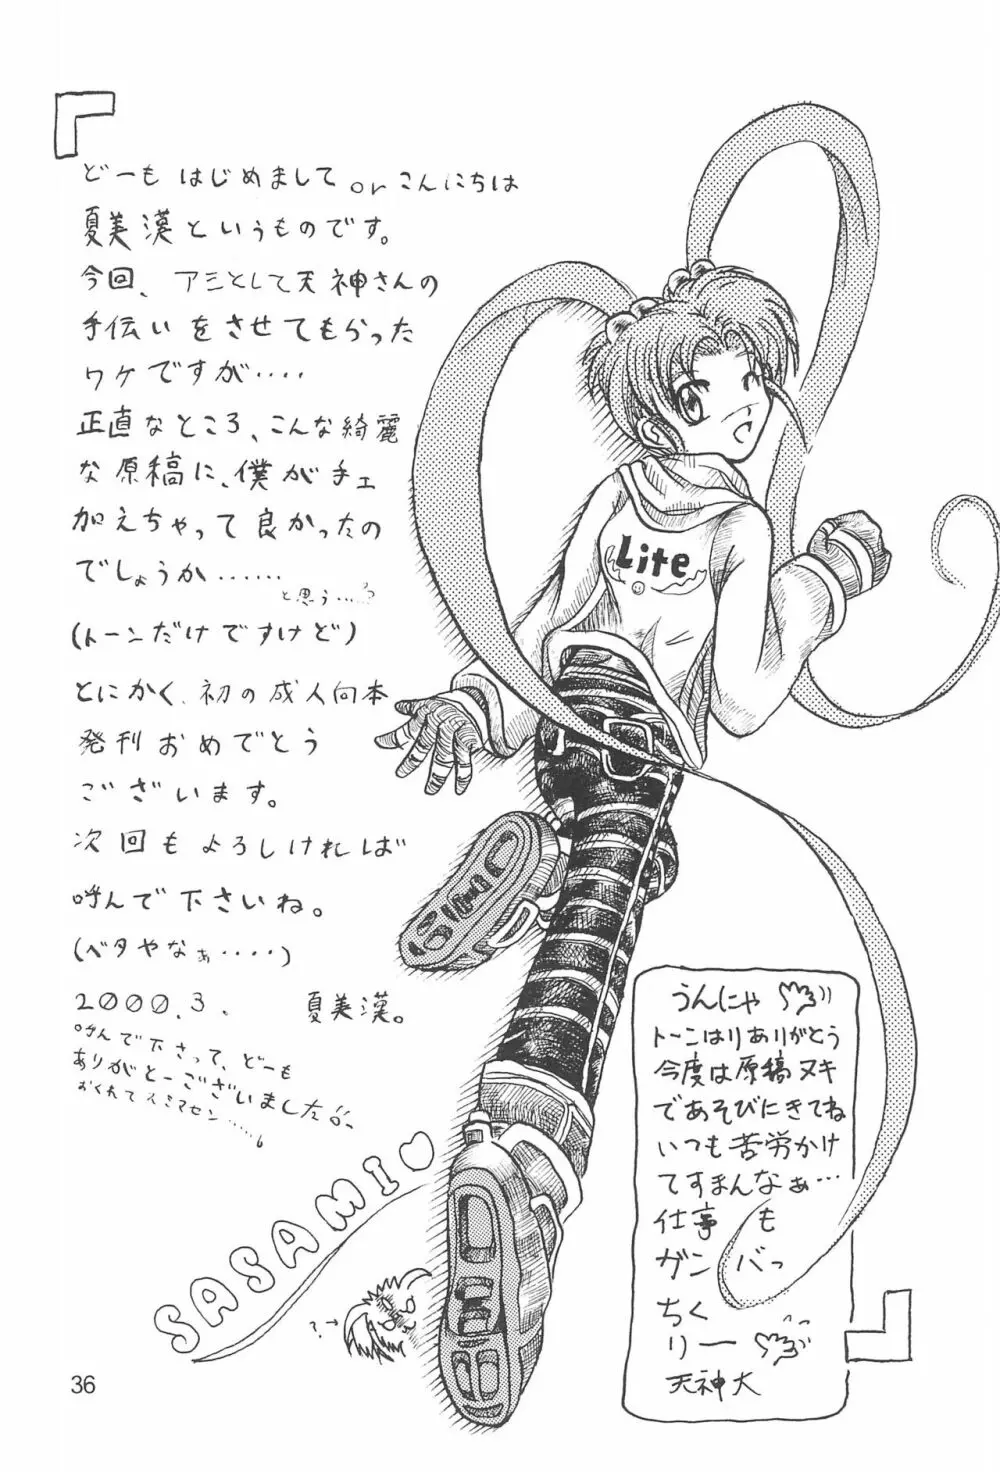 どーも はじめまして or こんにちは
夏美漢というものです。
今回、アシとして天神さんの
手伝いをさせてもらった
ワケですが‥‥
正直なところ、こんな綺麗
な原稿に、僕がチェ
加えちゃって良かったの
でしょうか‥‥‥
と思う‥‥
(トーンだけですけど)
とにかく、初の成人向本
発刊おめでとう
ございます。
次回もよろしければ
呼んで下さいね。
(ベタやなぁ‥‥‥)
2000.3. 夏美漢。
呼んで下さって、どーも
ありがとーございました
おくれてスミマセン‥‥‥
Lite
SASAMI♡
?→
うんにゃ
トーンはりありがとう
今度は原稿ヌキ
であそびにきてね
いつも苦労かけ
てすまんなぁ…
仕事も
ガンバっ
ちくりー
天神大
36